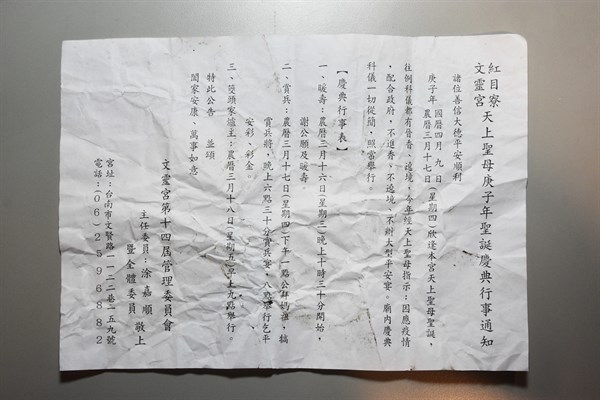 紅目寮
文靈宮
天上聖母庚子年聖誕慶典行事通知
諸位善信大德平安順利
庚子年
國曆四月九日
農曆三月十七日
(星期四)欣逢本宮天上聖母聖誕，
往例科儀都有晉香、遶境，今年經天上聖母指示：因應疫情
，配合政府，不進香、不遶境、不辦大型平安宴，廟內慶典
科儀一切從簡，照常舉行。
【慶典行事表】
一、暖壽：農曆三月十六日(星期三)晚上十時三十分開始，
謝公願及暖壽。
二、賞兵：農曆三月十七日(星期四)下午一點公拜媽祖，犒
賞兵將，晚上六點三十分賞兵宴，八點舉行乞平
安彩、彩金。
三、筊頭家爐主：農曆三月十八日(星期五)早上九點舉行。
特此公告　並頌
闔家安康、萬事如意
文靈宮第十四屆管理委員會
主任委員：涂嘉順
暨全體委員
敬上
宮址：台南市文賢路一一二二巷一五九號
電話：(06)2596882